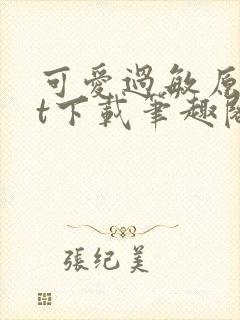 可愛過敏原
t下載筆趣閣
張纪美